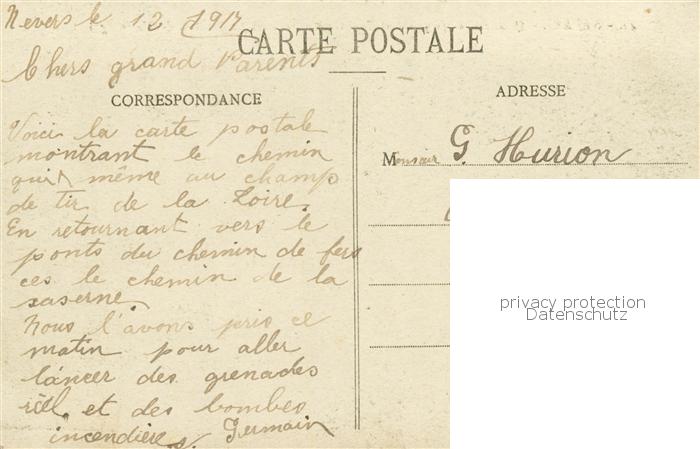 Nevers le 12 1917
CARTE POSTALE
Chers grand Parents
CORRESPONDANCE
ADRESSE
Voici la carte postale
montrant le chemin
qui même au champ
de tir de la Loire.
En retournant vers le
ponts du chemin de fers
ces le chemin de la
caserne
Nous l'avons pris ce
matin pour aller
lancer des grenades
et des bombes
incendières. Germain
Monsieur G. Hurion
privacy protection
Datenschutz